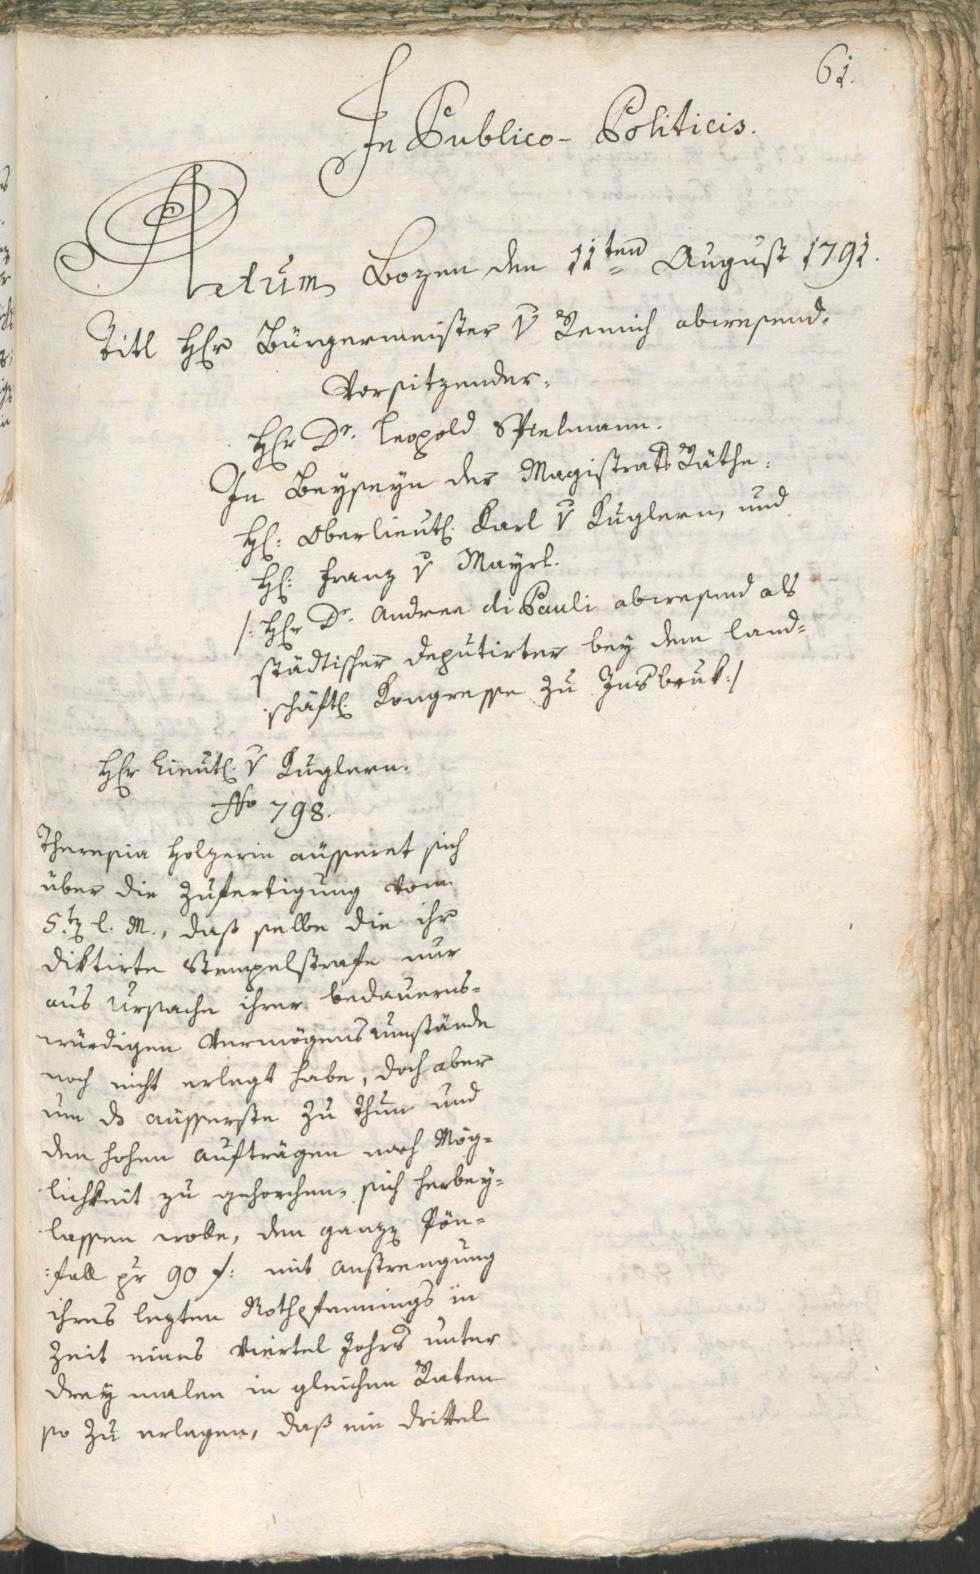 61.
In Publico-Politicis.
Actum Bozen den 11ten August 1791.
Titl Hr Bürgermeister v Remich abwesend.
Vorsitzender.
Hr Dr. Leopold Spielmann.
In Beyseyn der Magistrats Räthe.
H: Oberlieut: Karl v Kuglern, und
H: Franz v Mayrl.
/: Hr Dr. Andree di Pauli abwesend als
städtischer Deputirter bey dem land-
schäftl: Kongresse zu Insbruk :/
Hr Lieut: v Kuglern.
No 798.
Theresia Holzerin äusseret sich
über die Zufertigung vom
5.t l. M., daß selbe die ihr
diktirte Stempelstrafe nur
aus Ursache ihrer bedauerns-
würdigen Vermögensumstände
noch nicht erlegt habe, doch aber
um ds äusserste zu thun und
den hohen Aufträgen nach Mög-
lichkeit zu gehorchen, sich herbey-
lassen wolle, den ganzen Pön-
:fall pr 90 f: mit Anstrengung
ihres lezten Nothpfennings in
Zeit eines Viertel Jahrs unter
drey malen in gleichen Raten
so zu erlagen, daß ein drittel